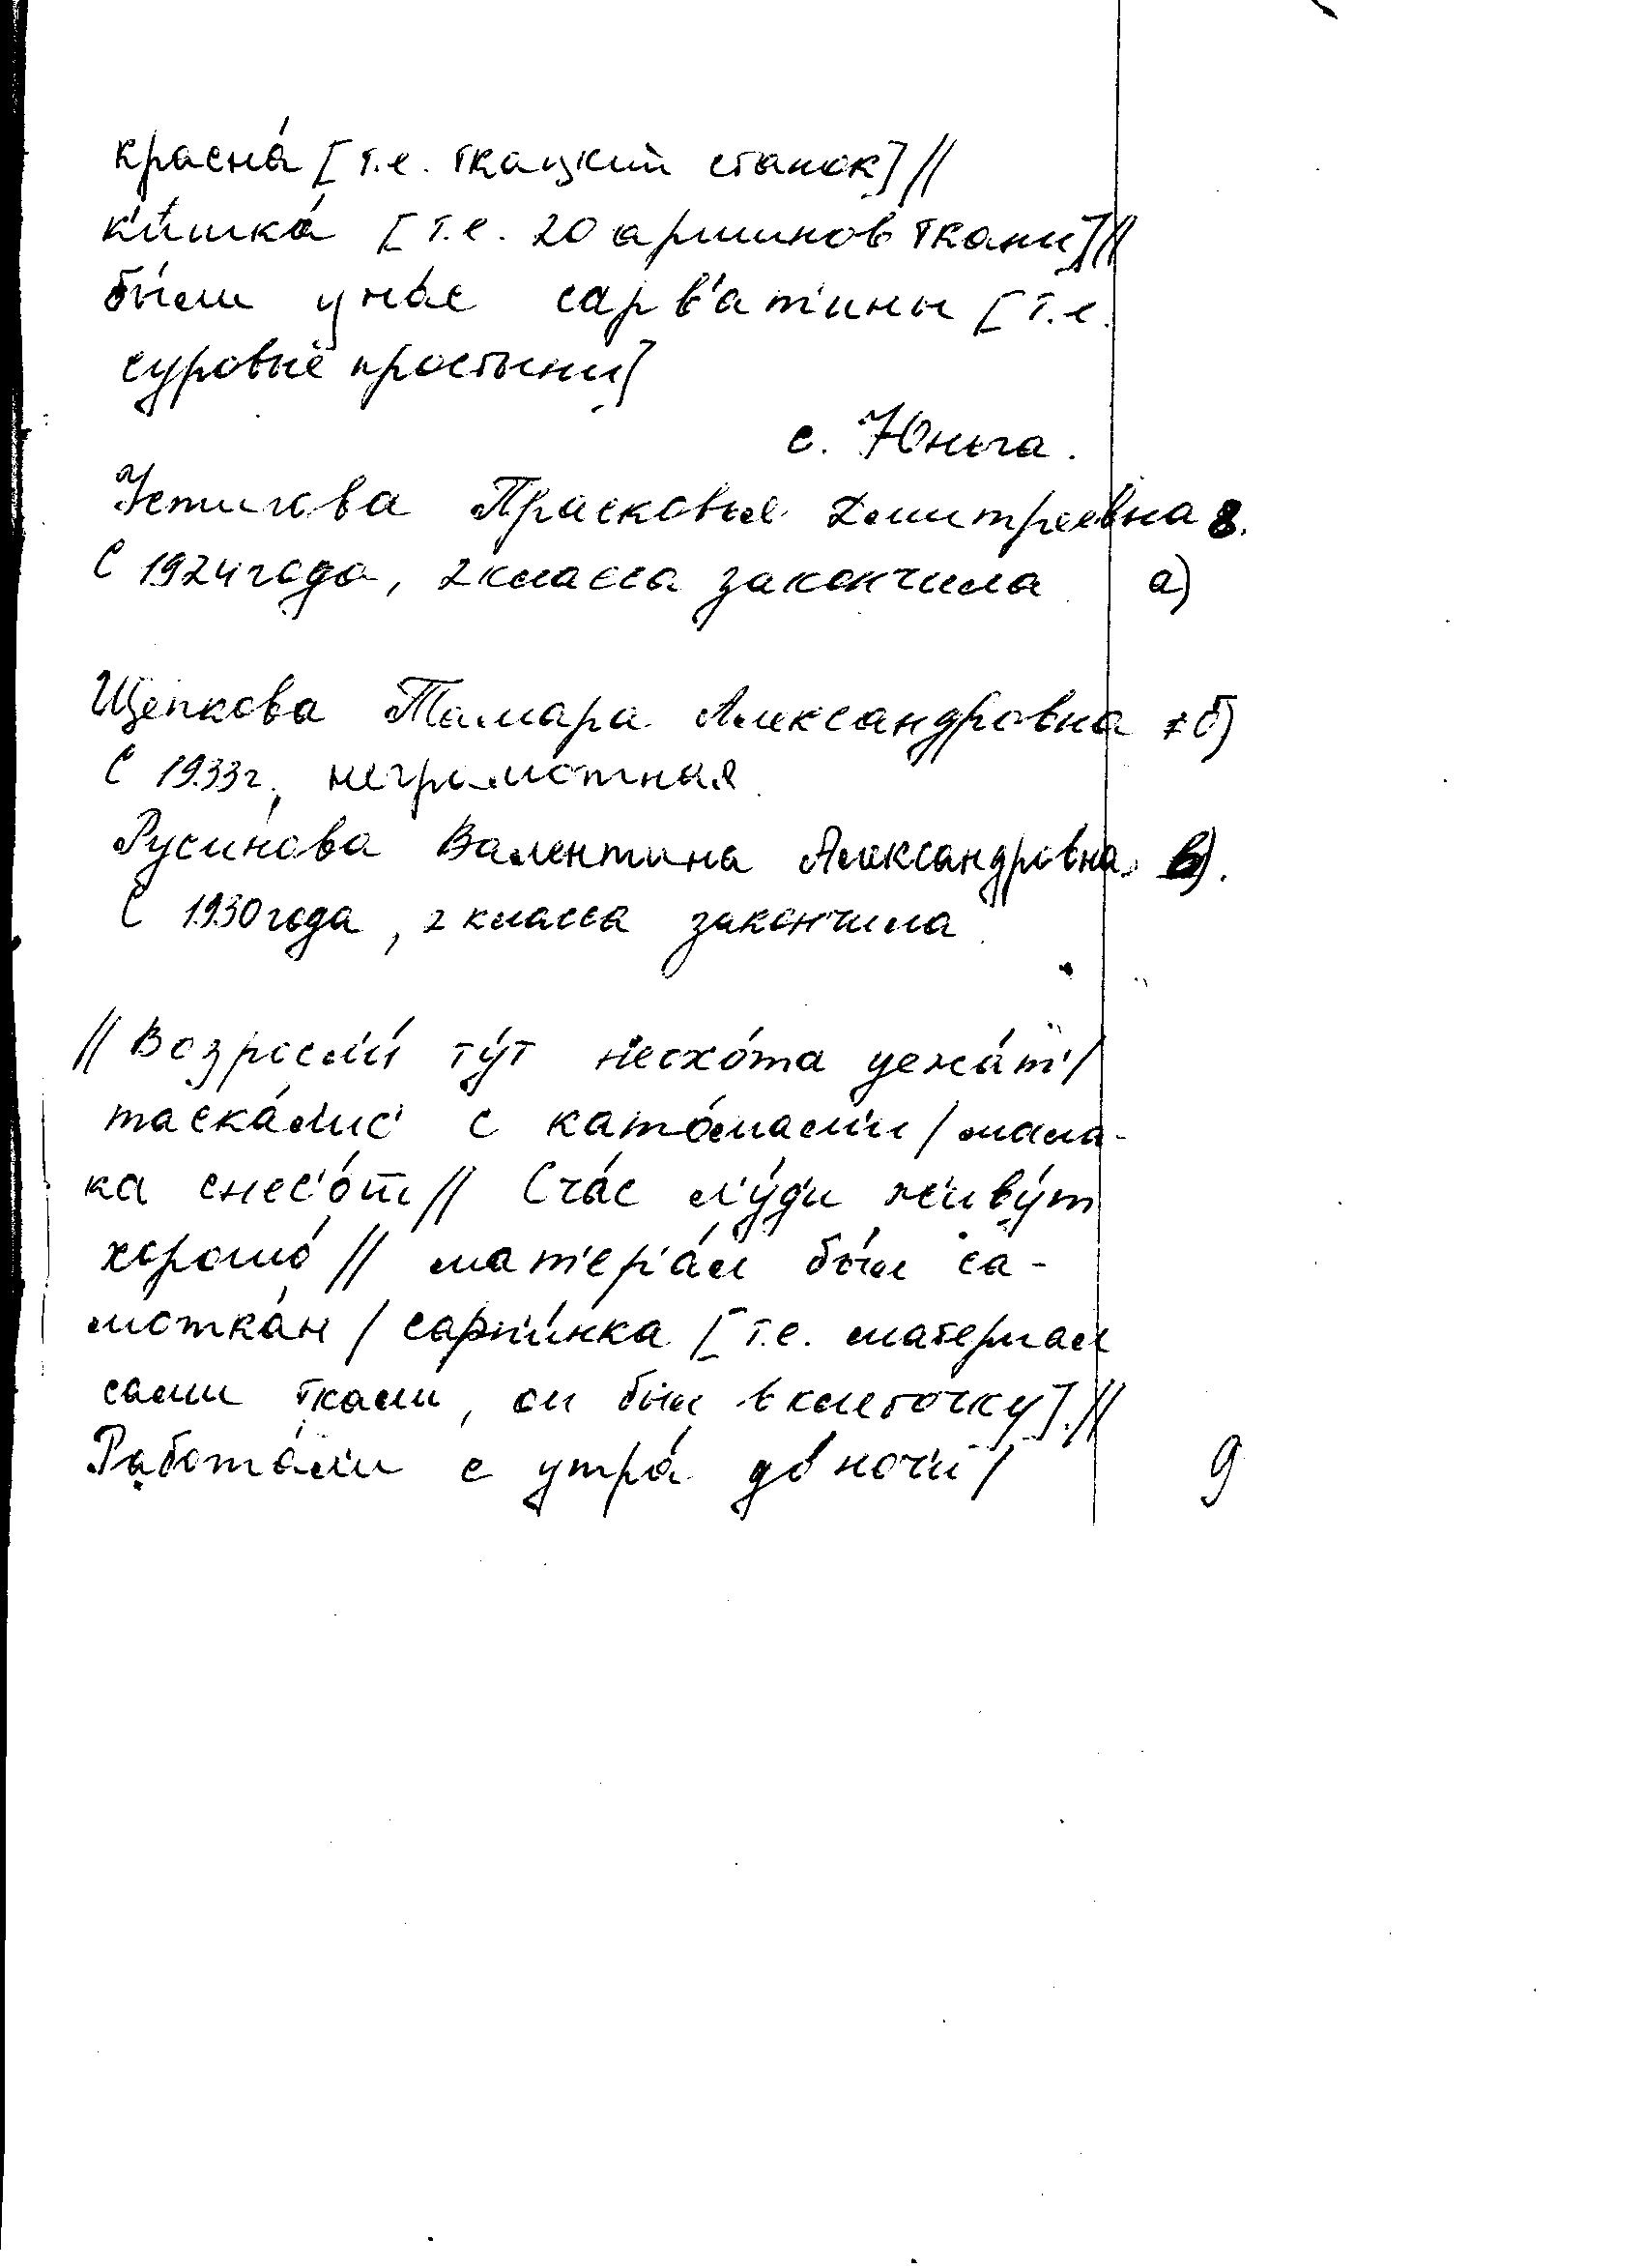 красна́ [т.е. ткацкий станок] //
к'и́шка́ [т.е. 20 аршинов ткани] //
бы́ли у на́с сарв'ат'ины [т.е.
суровые простыни]
с. Юнга.
Устигова Прасковья Дмитреевна 8.
С 1924 года, 2 класса закончила а)
Щепкова Тамара Александровна б)
С 1933 г., неграмотная
Русинова Валентина Александровна в).
С 1930 года, 2 класса закончила
// Возросли́ ту́т н'еохо́та уежа́т' /
таска́лис' с като́мам'и / мала-
ка снес'о́т // Сча́с л'у́д'и живу́т
хорошо́ // мат'ер'а́л бы́л са-
мотка́н / сарпи́нка [т.е. материал
сами ткали, он был в клеточку] //
Работа́л'и с утра́ до́ ноч'и /
9